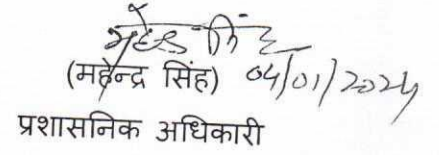 महेन्द्र सिंह
(महेन्द्र सिंह) 04/01/2024
प्रशासनिक अधिकारी